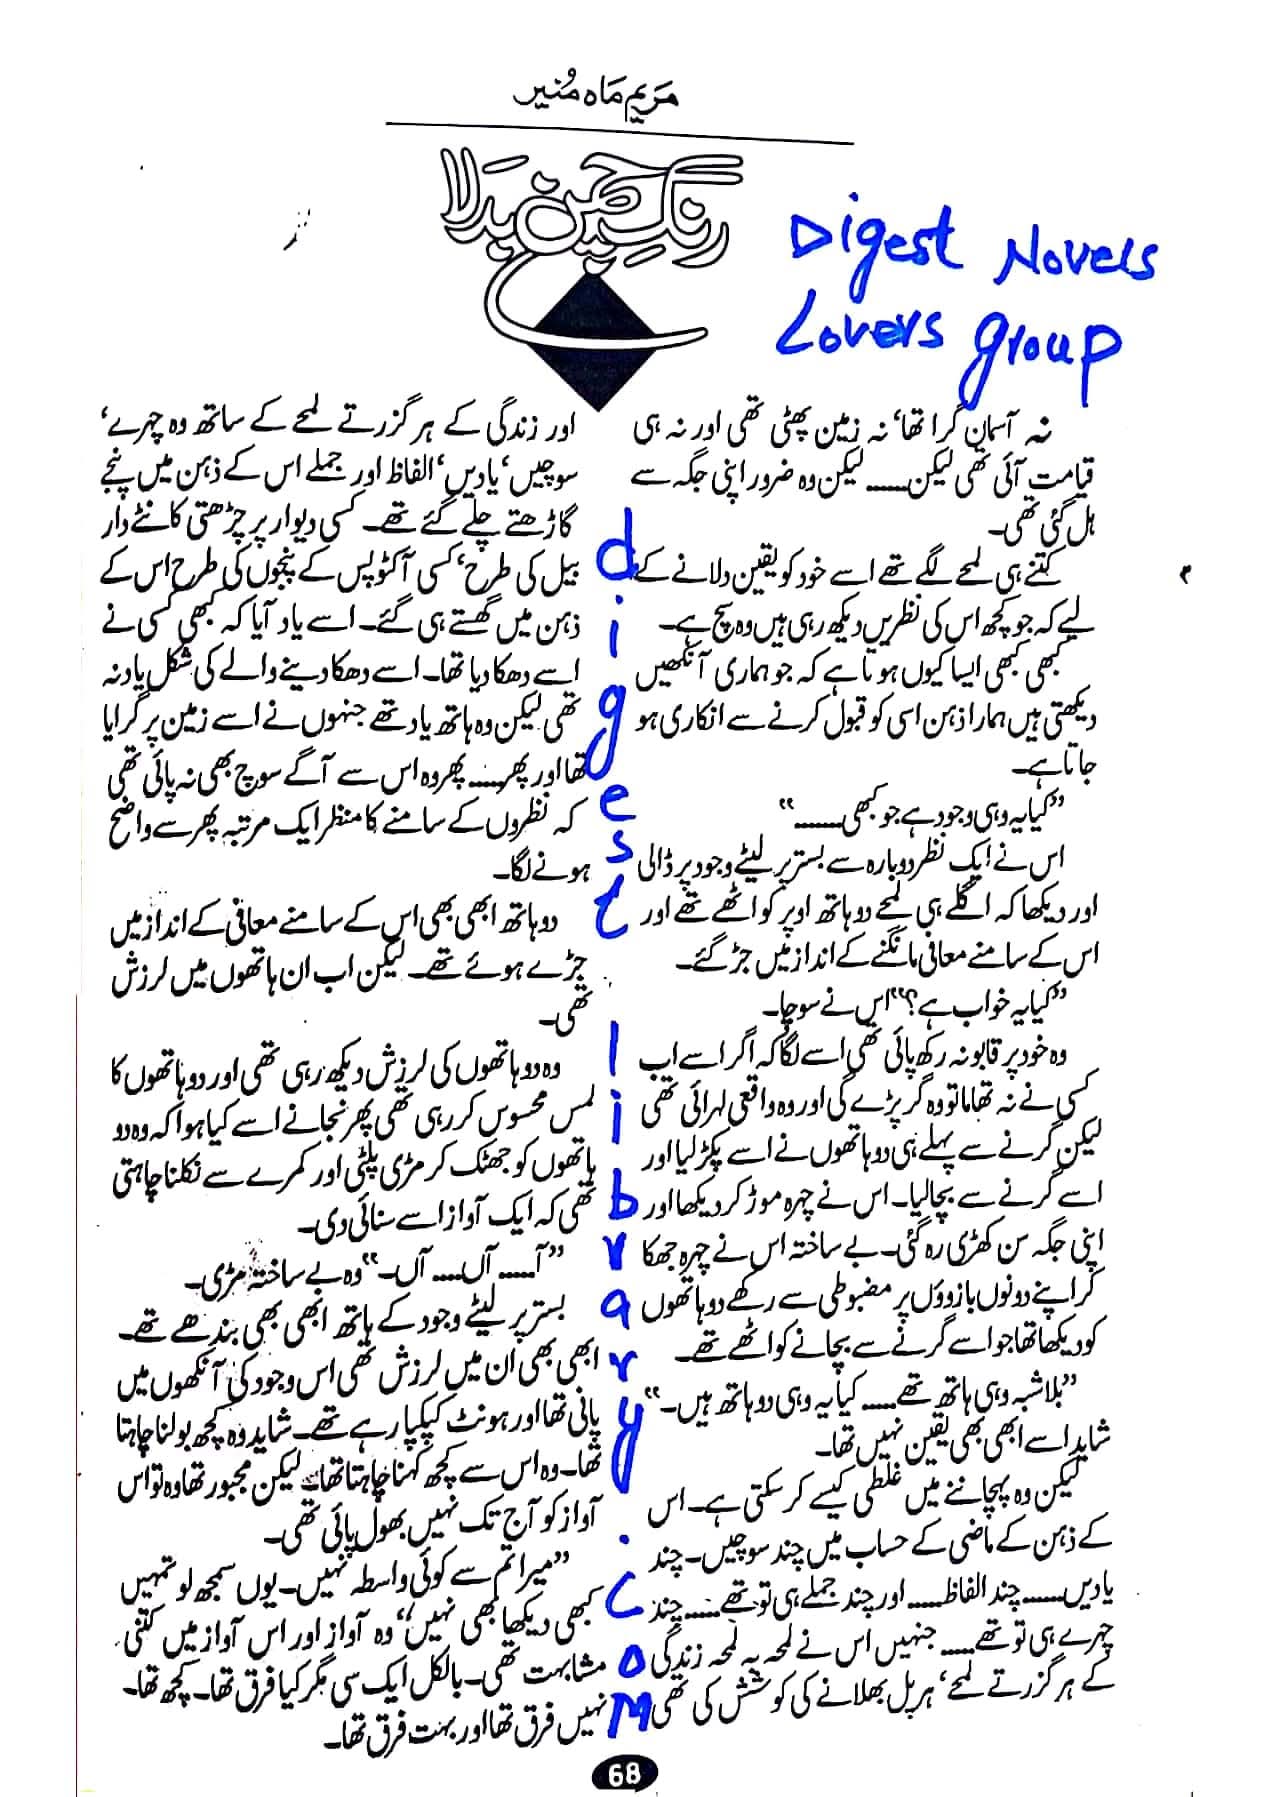 مریم ماہ منیر
رنگِ چمن بدلا
Digest Novels
Lovers group
نہ آسمان گرا تھا‘ نہ زمین پھٹی تھی اور نہ ہی
قیامت آئی تھی لیکن...... لیکن وہ ضرور اپنی جگہ سے
ہل گئی تھی۔
کتنے ہی لمحے لگے تھے اسے خود کو یقین دلانے کے
لیے کہ جو کچھ اس کی نظریں دیکھ رہی ہیں وہ سچ ہے۔
کبھی کبھی ایسا کیوں ہوتا ہے کہ جو ہماری آنکھیں
دیکھتی ہیں ہمارا ذہن اسی کو قبول کرنے سے انکاری ہو
جاتا ہے۔
”کیا یہ وہی وجود ہے جو کبھی......“
اس نے ایک نظر دوبارہ سے بستر پر لیٹے وجود پر ڈالی
اور دیکھا کہ اگلے ہی لمحے دو ہاتھ اوپر کو اٹھے تھے اور
اس کے سامنے معافی مانگنے کے انداز میں جڑ گئے۔
”کیا یہ خواب ہے؟“ اس نے سوچا۔
وہ خود پر قابو نہ رکھ پائی تھی اسے لگا کہ اگر اسے اب
کسی نے نہ تھاما تو وہ گر پڑے گی اور وہ واقعی لہرائی تھی
لیکن گرنے سے پہلے ہی دو ہاتھوں نے اسے پکڑ لیا اور
اسے گرنے سے بچا لیا۔ اس نے چہرہ موڑ کر دیکھا اور
اپنی جگہ سن کھڑی رہ گئی۔ بے ساختہ اس نے چہرہ جھکا
کر اپنے دونوں بازوؤں پر مضبوطی سے رکھے دو ہاتھوں
کو دیکھا تھا جو اسے گرنے سے بچانے کو اٹھے تھے۔
”بلاشبہ وہی ہاتھ تھے..... کیا یہ وہی دو ہاتھ ہیں۔“
شاید اسے ابھی بھی یقین نہیں تھا۔
لیکن وہ پہچاننے میں غلطی کیسے کر سکتی ہے۔ اس
کے ذہن کے ماضی کے حساب میں چند سوچیں۔ چند
یادیں...... چند الفاظ..... اور چند جملے ہی تو تھے..... چند
چہرے ہی تو تھے..... جنہیں اس نے لمحہ بہ لمحہ زندگی
کے ہر گزرتے لمحے‘ ہر پل بھلانے کی کوشش کی تھی
اور زندگی کے ہر گزرتے لمحے کے ساتھ وہ چہرے‘
سوچیں‘ یادیں‘ الفاظ اور جملے اس کے ذہن میں پنجے
گاڑھتے چلے گئے تھے۔ کسی دیوار پر چڑھتی کانٹے دار
بیل کی طرح‘ کسی آکٹوپس کے پنجوں کی طرح اس کے
ذہن میں گھستے ہی گئے۔ اسے یاد آیا کہ کبھی کسی نے
اسے دھکا دیا تھا۔ اسے دھکا دینے والے کی شکل یاد نہ
تھی لیکن وہ ہاتھ یاد تھے جنہوں نے اسے زمین پر گرایا
تھا اور پھر...... پھر وہ اس سے آگے سوچ بھی نہ پائی تھی
کہ نظروں کے سامنے کا منظر ایک مرتبہ پھر سے واضح
ہونے لگا۔
دو ہاتھ ابھی بھی اس کے سامنے معافی کے انداز میں
جڑے ہوئے تھے۔ لیکن اب ان ہاتھوں میں لرزش
تھی۔
وہ دو ہاتھوں کی لرزش دیکھ رہی تھی اور دو ہاتھوں کا
لمس محسوس کر رہی تھی پھر نجانے اسے کیا ہوا کہ وہ دو
ہاتھوں کو جھٹک کر مڑی پلٹی اور کمرے سے نکلنا چاہتی
تھی کہ ایک آواز اسے سنائی دی۔
”آ..... آں.... آں۔“ وہ بے ساختہ مڑی۔
بستر پر لیٹے وجود کے ہاتھ ابھی بھی بندھے تھے۔
ابھی بھی ان میں لرزش تھی اس وجود کی آنکھوں میں
پانی تھا اور ہونٹ کپکپا رہے تھے۔ شاید وہ کچھ بولنا چاہتا
تھا۔ وہ اس سے کچھ کہنا چاہتا تھا۔ لیکن مجبور تھا وہ تو اس
آواز کو آج تک نہیں بھول پائی تھی۔
”میرا تم سے کوئی واسطہ نہیں۔ یوں سمجھ لو تمہیں
کبھی دیکھا بھی نہیں“ وہ آواز اور اس آواز میں کتنی
مشابہت تھی۔ بالکل ایک سی مگر کیا فرق تھا۔ کچھ تھا۔
نہیں فرق تھا اور بہت فرق تھا۔
digest library.com
68